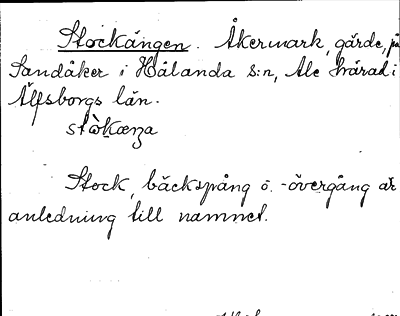 Stockängen. Åkermark, gärde, på
Sandåker i Hålanda s:n, Ale härad i
Älfsborgs län.
Stock, bäckspång o. -övergång är
anledning till namnet.